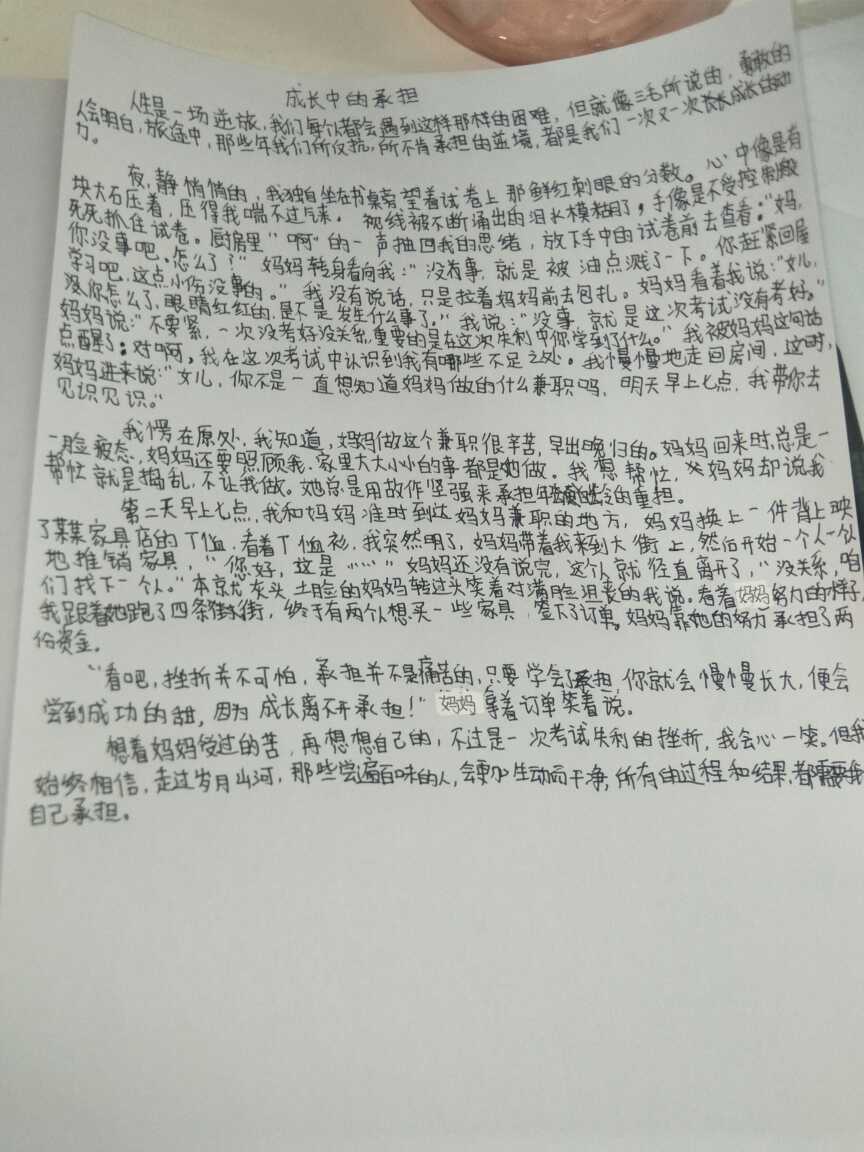 成长中的承担
人生是一场逆旅,我们每个人都会遇到这样那样的困难,但就像三毛所说的,勇敢的
人会明白,旅途中,那些年我们所反抗,所不肯承担的逆境,都是我们一次又一次长长成长的动
力。
夜,静悄悄的,我独自坐在书桌旁望着试卷上那鲜红刺眼的分数。心中像是有
块大石压着,压得我喘不过气来,视线被不断涌出的泪水模糊了,手像是不受控制般
死死抓住试卷。厨房里"啊"的一声抽回我的思绪,放下手中的试卷前去查看:"妈,
你没事吧,怎么了?"妈妈转身看向我:"没有事,就是被油点溅了一下。你赶紧回屋
学习吧,这点小伤没事的。"我没有说话,只是拉着妈妈前去包扎。妈妈看着我说:"女儿,
你怎么了,眼睛红红的,是不是发生什么事了。"我说:"没事,就是这次考试没有考好。"
妈妈说:"不要紧,一次没考好没关系,重要的是在这次失利中你学到了什么。"我被妈妈这句话
点醒了:对啊,我在这次考试中认识到我有哪些不足之处。我慢慢地走回房间,这时,
妈妈进来说:"女儿,你不是一直想知道妈妈做的什么兼职吗,明天早上七点,我带你去
见识见识。"
我愣在原处,我知道,妈妈做这个兼职很辛苦,早出晚归的。妈妈回来时,总是一
一脸疲态,妈妈还要照顾我,家里大大小小的事都是她做。我想帮忙,妈妈却说我
帮忙就是捣乱,不让我做。她总是用故作坚强来承担的重担。
第二天早上七点,我和妈妈准时到达妈妈兼职的地方,妈妈换上一件背上映
了某某家具店的T恤,看着T恤衫,我突然明了,妈妈带着我来到大街上,然后开始一个人一个人
地推销家具,"您好,这是……"妈妈还没有说完,这个人就径直离开了,"没关系,咱
们找下一个人。"本就灰头土脸的妈妈转过头笑着对满脸沮丧的我说。看着妈妈努力的样子,
我跟着她跑了四条街,终于有两个人想买一些家具,签下了订单。妈妈靠她的努力承担了两
份资金。
"看吧,挫折并不可怕,承担并不是痛苦的,只要学会了承担,你就会慢慢长大,便会
尝到成功的甜,因为成长离不开承担!"妈妈拿着订单笑着说。
想着妈妈受过的苦,再想想自己的,不过是一次考试失利的挫折,我会心一笑。但我
始终相信,走过岁月山河,那些尝遍百味的人,会更加生动而干净,所有的过程和结果,都需要我
自己承担。